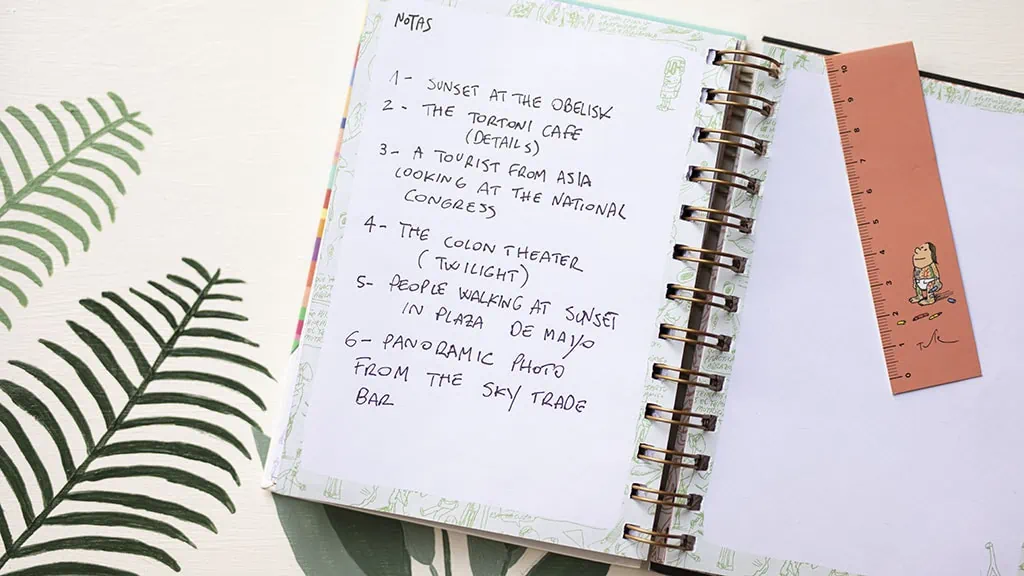 NOTAS
1 - SUNSET AT THE OBELISK
2 - THE TORTONI CAFE
(DETAILS)
3 - A TOURIST FROM ASIA
LOOKING AT THE NATIONAL
CONGRESS
4 - THE COLON THEATER
(TWILIGHT)
5 - PEOPLE WALKING AT SUNSET
IN PLAZA DE MAYO
6 - PANORAMIC PHOTO
FROM THE SKY TRADE
BAR
10
9
8
7
6
5
4
3
2
1
0